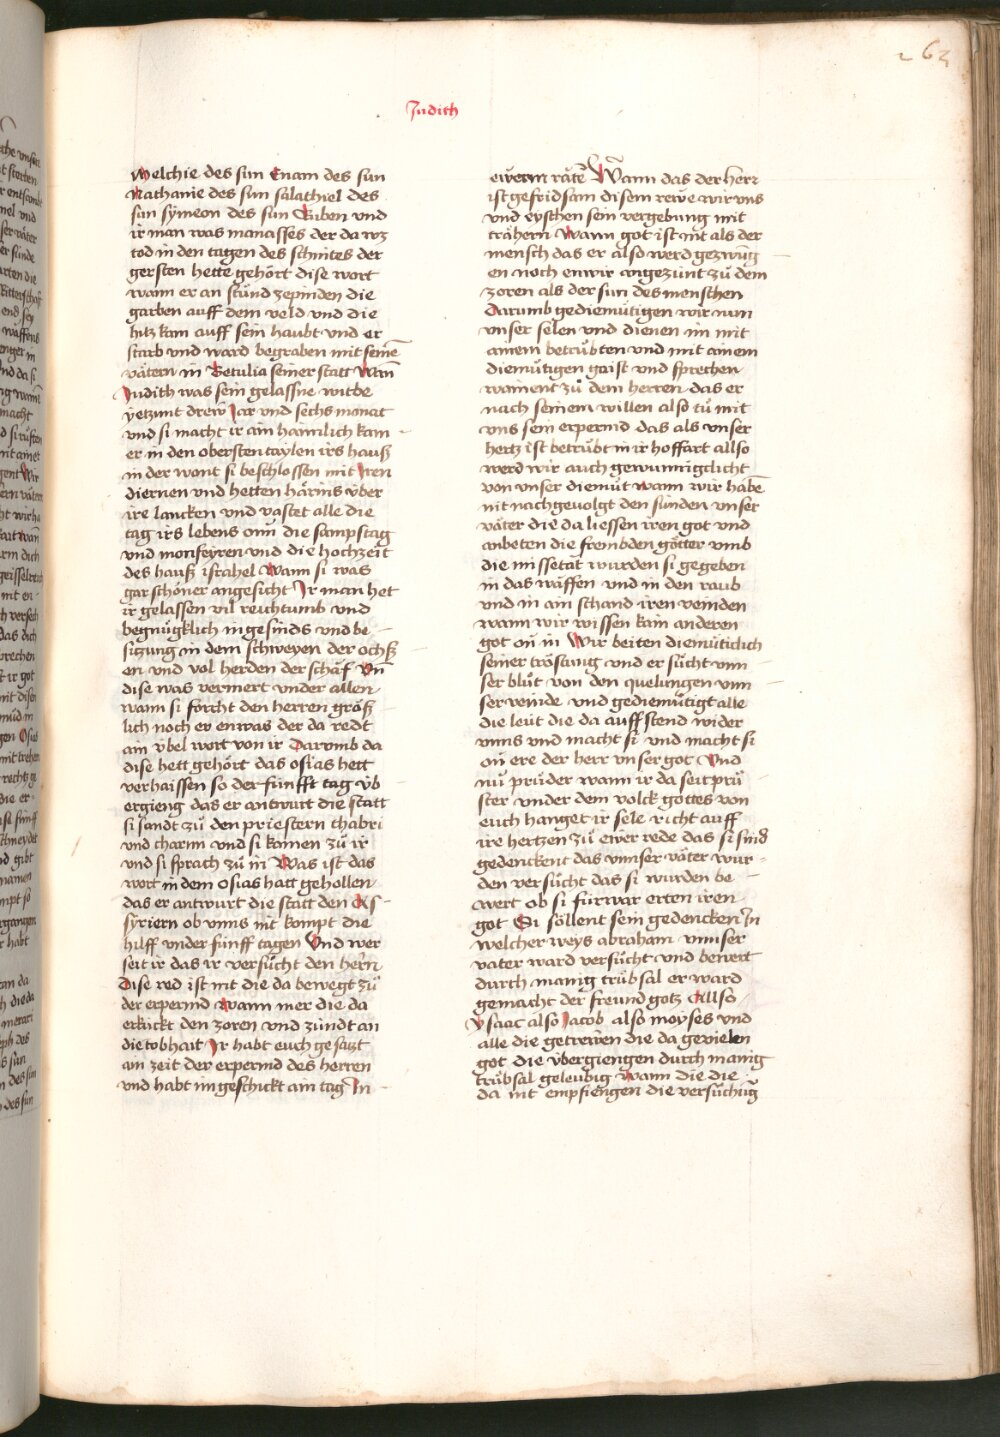 262
Judith
Melchie des sun Enam des sun
Nathanie des sun salathiel des
sun symeon des sun Ruben und
ir man was manasses der da wz
tod in den tagen des schnites der
gersten hette gehört dise wort
wann er an stůnd zepinden die
garben auff dem veld und die
hitz kam auff sein haubt und er
starb vnd ward begraben mit seinē
vätern in Betulia seiner statt Wañ
Judith was sein gelassne witbe
yetzunt drew Jar vnd sechs monat
vnd si macht ir ain haimlich kam
er in den obersten taylen irs hauß
in der wont si beschlossen mit Iren
diernen vnd hetten härins vber
ire lancken vnd vastet alle die
tag irs lebens oñ die sampstag
vnd monfeyren vnd die hochzeit
des hauß israhel Wann si was
gar schöner angesicht Ir man het
ir gelassen vil reichtumb vnd
begnügklich ingesinds vnd be
sitzung in dem schweyen der ochß
en vnd vol herden der schäf Vñ
dise was vermert vnder allen
wann si forcht den herren größ
lich noch er enwas der da redt
ain vbel wort von ir Darumb da
dise hett gehört das osias hett
verhaissen so der fünfft tag vb
ergieng das er antwurt die statt
si sandt zů den priestern chabri
vnd charim vnd si komen zů ir
vnd si sprach zů in Was ist das
wort in dem Osias hatt gehollen
das er antwurt die statt den As
syriern ob vnns nit kompt die
hilff vnder fünff tagen Vnd wer
seit ir das ir versůcht den herrn
Dise red ist nit die da bewegt zů
der erpermd wann mer die da
erkückt den zoren vnd zündt an
die tobhait Ir habt euch gesatzt
ain zeit der erpermd des herren
vnd habt im geschickt ain tag In
eiwerm räte Wann das der herr
ist gefridsam disem rewe wir vns
vnd eyschen sein vergebung mit
trähern Wann got ist nit als der
mensch das er also werd gezwūg
en noch enwir angezünt zů dem
zoren als der sun des menschen
Darumb gediemütigen wir nun
vnser selen vnd dienen im mit
ainem betrübten vnd mit ainem
diemütigen gaist vnd sprechen
wainent zů dem herren das er
nach seinem willen also tů mit
vns sein erpermd das als vnser
hertz ist betrübt in ir hoffart allso
werd wir auch gewunnigclicht
von vnser diemůt wann wir habē
nit nachgeuolgt den sünden vnser
väter die da liessen iren got vnd
anbeten die frembden götter vmb
die missetat wurden si gegeben
in das wäffen vnd in den raub
vnd in ain schand iren veinden
wann wir wissen kain anderen
got on in Wir beiten diemüticlich
seiner tröstung vnd er sůcht vnn
ser blůt von den quelungen vnn
ser veinde vnd gediemütigt alle
die leüt die da auff stend wider
vnns vnd macht si vnd macht si
on ere der herr vnser got Vnd
nů prüder wann ir da seit prü
ster vnder dem volck gottes von
euch hanget ir sele richt auff
ire hertzen zů ewer rede das si sind
gedenckent das vnnser väter wur
den versůcht das si wurden be
wert ob si fürwar erten iren
got Si söllent sein gedencken In
welcher weys abraham vnnser
vater ward versůcht vnd bewert
durch manig trübsal er ward
gemacht der freund gotz Allso
ysaac also Jacob also moyses vnd
alle die getrewen die da gevielen
got die vbergiengen durch manig
trübsal geleubig Wann die die
da nit empfiengen die versůchūg